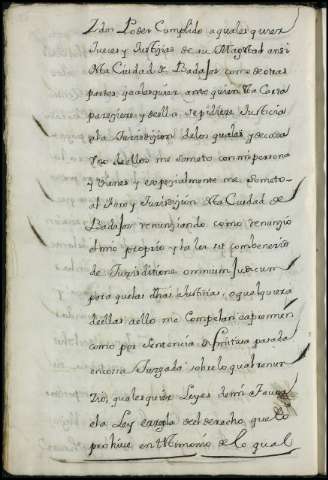 Y doy Poder Cumplido a qualesquier
Jueces y Justiçias de su Magestad ansi
desta Ciudad de Badajoz como de otras
partes y qualesquier ante quien esta Carta
pareziere y de ella se pidiere Justiçia
a la Jurisdiçion de los quales y de cada
Uno de ellos me someto con mi persona
y vienes y espeçialmente me someto
al fuero y Jurisdiçion desta Ciudad de
Badajoz renunçiando como renunçio
el mio proprio y la ley sit combenerit
de Jurisditione omnium Judicum
para que las dhas Justiçias, o qualquiera
de ellas a ello me Compelan e apremien
como por Sentençia difinitiva pasada
en cosa Juzgada sobre lo qual renun
zio, qualesquier Leyes de mi fauor
e la Ley e regla del derecho que lo
prohiue en testimonio de lo qual